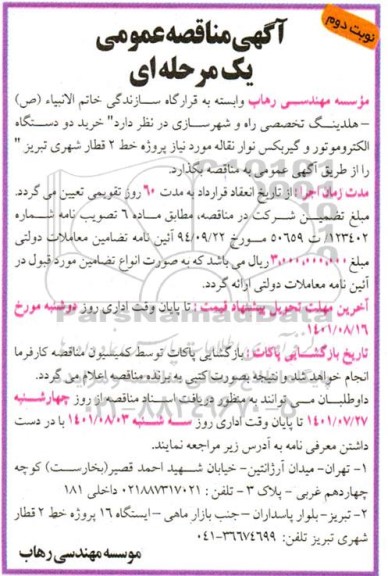 نوبت دوم
آگهی مناقصه عمومی
یک مرحله ای
مؤسسه مهندسی رهاب وابسته به قرارگاه سازندگی خاتم الانبیاء (ص)
– هلدینگ تخصصی راه و شهرسازی در نظر دارد" خرید دو دستگاه
الکتروموتور و گیربکس نوار نقاله مورد نیاز پروژه خط ۲ قطار شهری تبریز "
را از طریق آگهی عمومی به مناقصه بگذارد.
مدت زمان اجرا : از تاریخ انعقاد قرارداد به مدت ۶۰ روز تقویمی تعیین می گردد.
مبلغ تضمین شرکت در مناقصه، مطابق ماده ۶ تصویب نامه شماره
۱۲۳۴۰۲/ ت ۵۰۶۵۹ مورخ ۹۴/۰۹/۲۲ آئین نامه تضامین معاملات دولتی
مبلغ ۳,۰۰۰,۰۰۰,۰۰۰ ریال می باشد که به صورت انواع تضامین مورد قبول در
آئین نامه معاملات دولتی ارائه گردد.
آخرین مهلت تحویل پیشنهاد قیمت : تا پایان وقت اداری روز دوشنبه مورخ
۱۴۰۱/۰۸/۱۶
تاریخ بازگشایی پاکات : بازگشایی پاکات توسط کمیسیون مناقصه کارفرما
انجام خواهد شد و نتیجه بصورت کتبی به برنده مناقصه اعلام می گردد.
داوطلبان می توانند به منظور دریافت اسناد مناقصه از روز چهارشنبه
۱۴۰۱/۰۷/۲۷ تا پایان وقت اداری روز سه شنبه ۱۴۰۱/۰۸/۰۳ با در دست
داشتن معرفی نامه به آدرس زیر مراجعه نمایند.
۱- تهران- میدان آرژانتین- خیابان شهید احمد قصیر(بخارست) کوچه
چهاردهم غربی - پلاک ۳ - تلفن : ۰۲۱۸۸۷۳۱۷۰۲۱ داخلی ۱۸۱
۲- تبریز- بلوار پاسداران – جنب بازار ماهی – ایستگاه ۱۶ پروژه خط ۲ قطار
شهری تبریز تلفن: ۳۶۶۷۴۶۹۹-۰۴۱
موسسه مهندسی رهاب
ParsNamadData